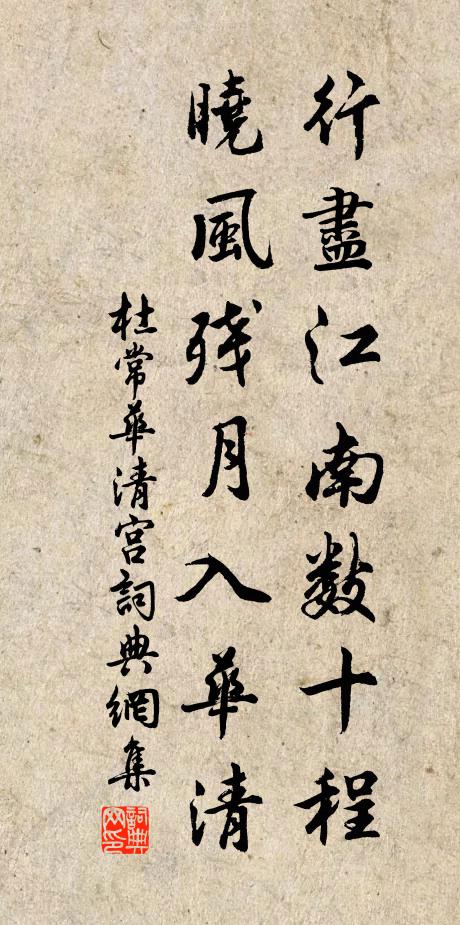 行盡江南数十程
曉風残月入華清
杜常華清宫詞典網集
詞典網印